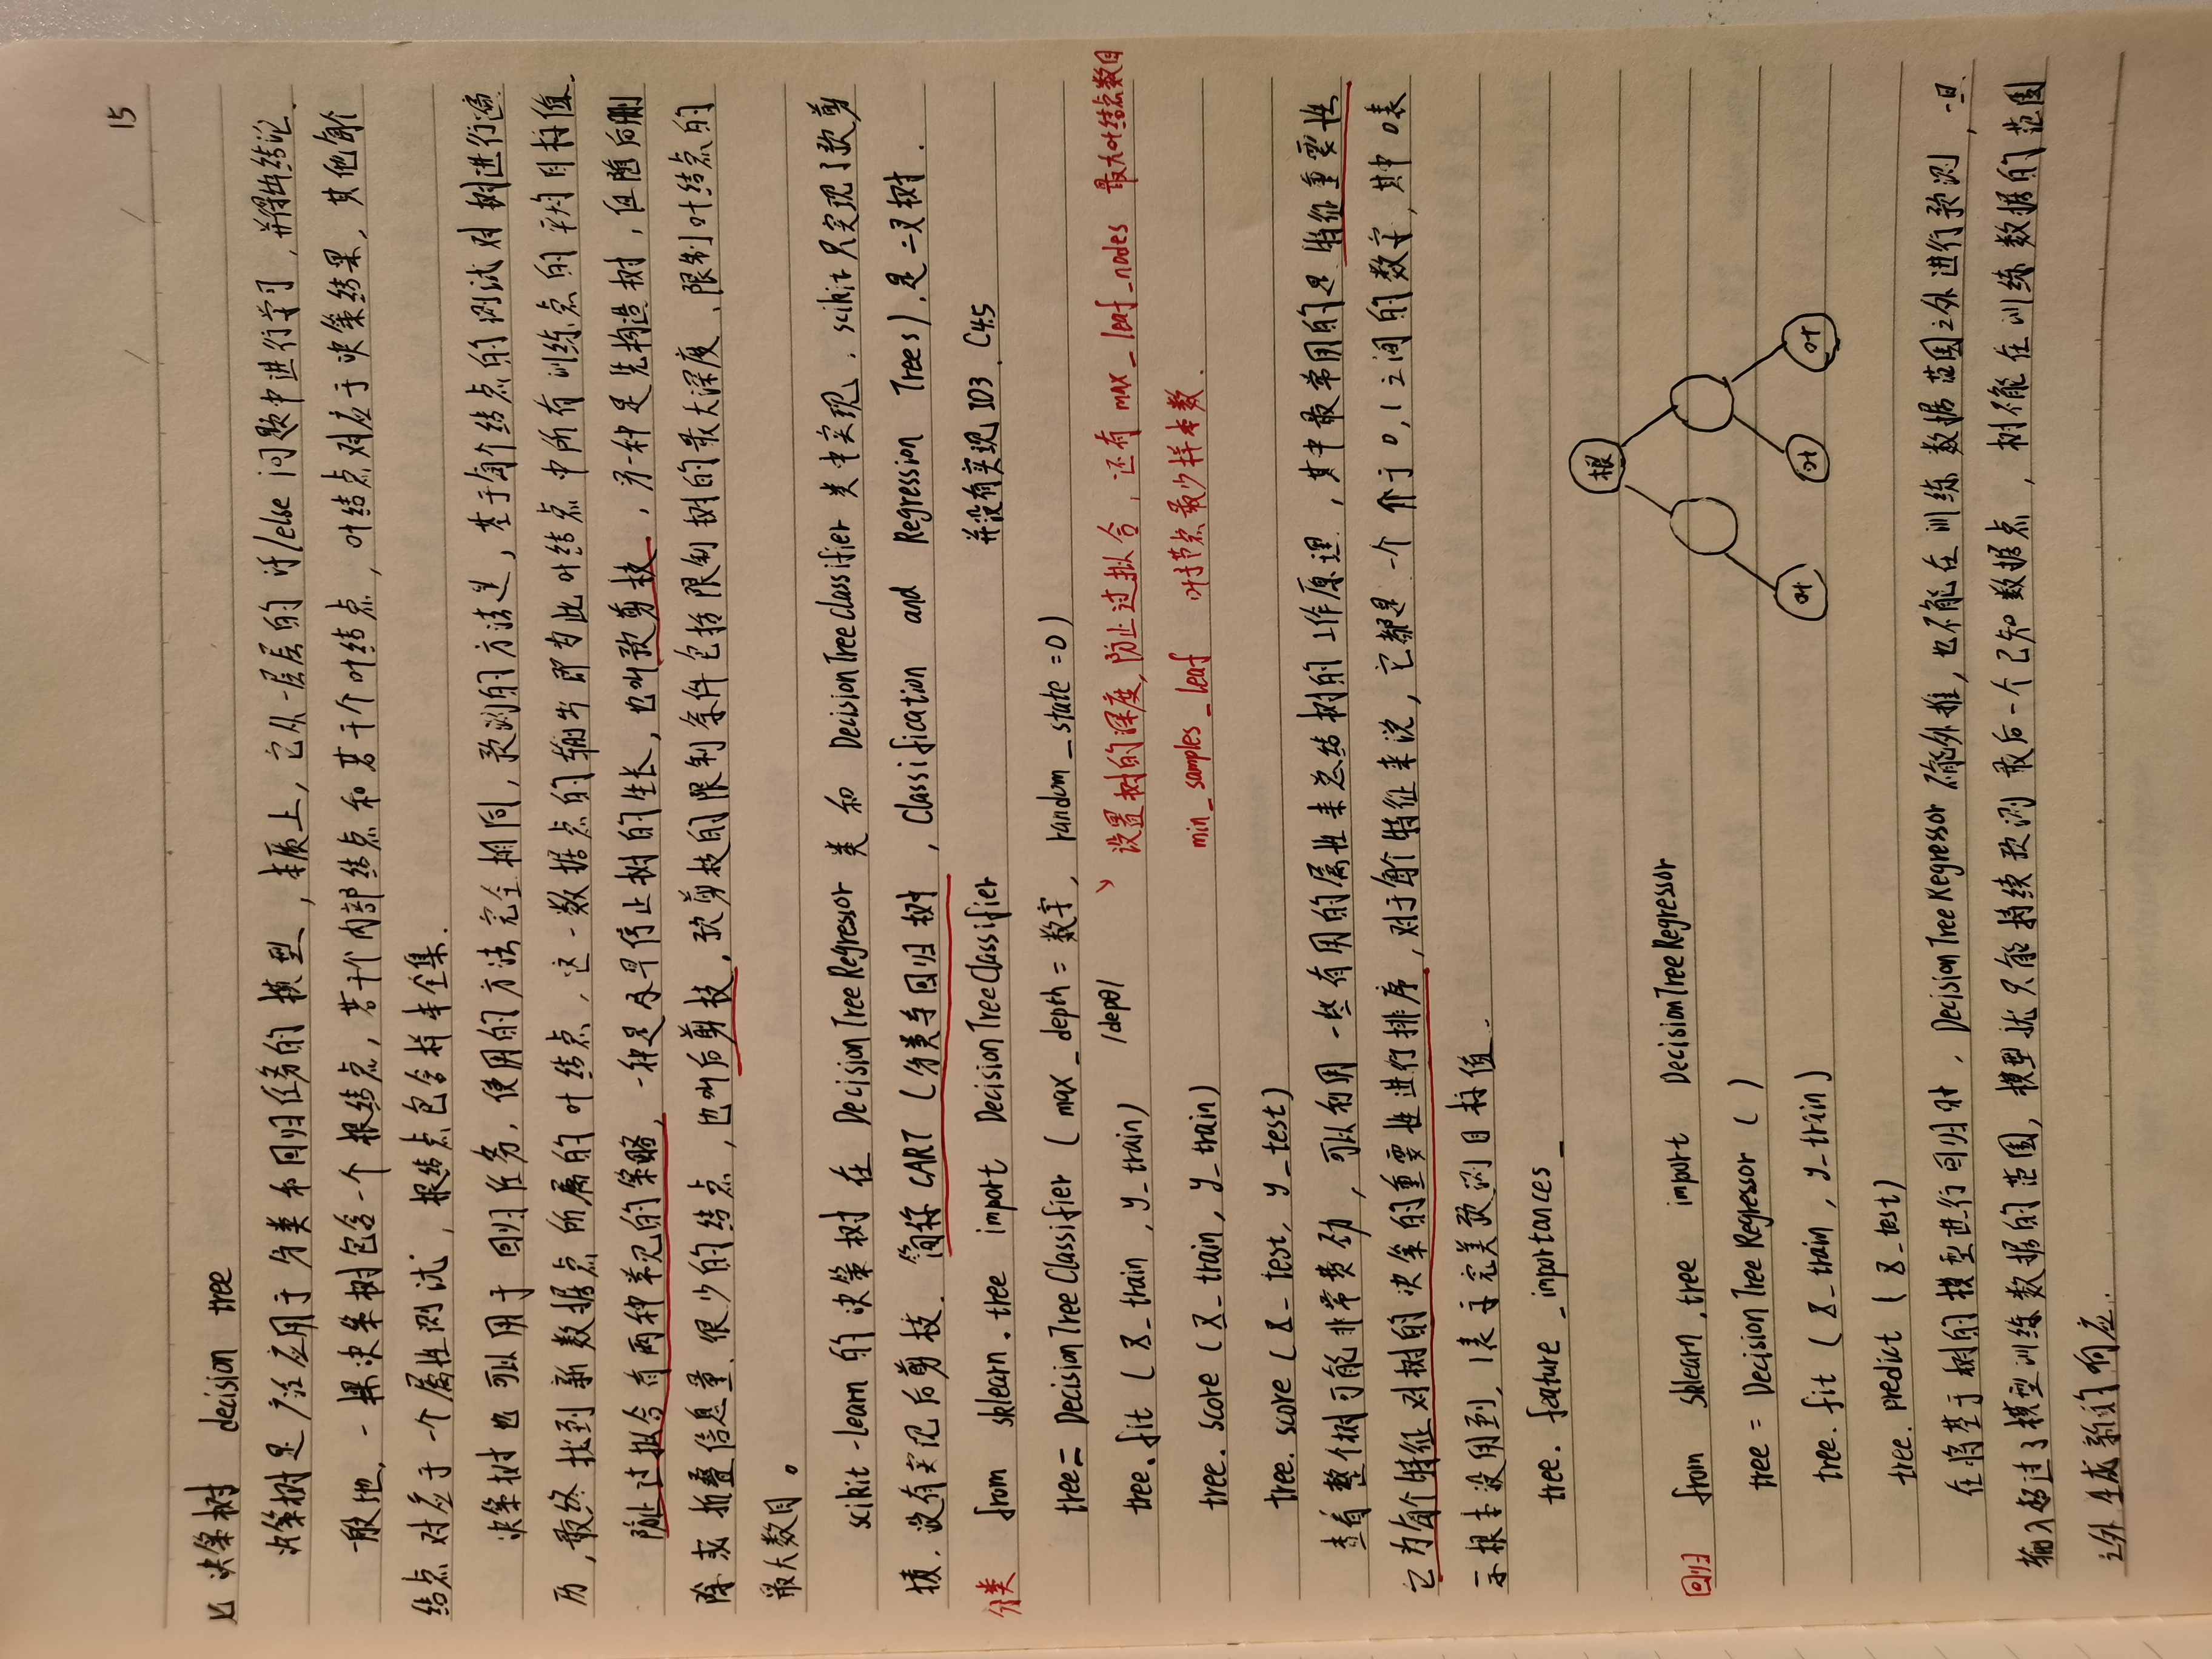 15
决策树 decision tree
决策树是广泛应用于分类和回归任务的模型,本质上,它从一层层的 if/else 问题中进行学习,并得出结论.
一般地,一棵决策树包含一个根结点,若干个内部结点和若干个叶结点,叶结点对应于决策结果,其他每个
结点对应于一个属性测试,根结点包含样本全集.
决策树也可以用于回归任务,使用的方法完全相同,预测的方法是,基于每个结点的测试对树进行遍
历,最终找到新数据点所属的叶结点,这一数据点的输出即为此叶结点中所有训练点的平均目标值.
防止过拟合有两种常见的策略,一种是及早停止树的生长,也叫预剪枝,另一种是先构造树,但随后删
除或折叠信息量很少的结点,也叫后剪枝,预剪枝的限制条件包括限制树的最大深度、限制叶结点的
最大数目。
scikit-learn 的决策树在 DecisionTreeRegressor 类和 DecisionTreeClassifier 类中实现. scikit 只实现了预剪
枝,没有实现后剪枝. 简称 CART (分类与回归树, Classification and Regression Trees),是二叉树.
分类 from sklearn.tree import DecisionTreeClassifier 并没有实现 ID3、C4.5
tree = DecisionTreeClassifier ( max_depth = 数字, random_state = 0 )
tree.fit ( X_train, y_train) 设置树的深度,防止过拟合,还有 max_leaf_nodes 最大叶结点数目
tree.score ( X_train, y_train) min_samples_leaf 叶子节点最少样本数.
tree.score ( X_test, y_test)
查看整个树可能非常费劲,可以利用一些有用的属性来总结树的工作原理,其中最常用的是特征重要性,
它为每个特征对树的决策的重要性进行排序,对于每个特征来说,它都是一个介于0,1之间的数字,其中0表
示根本没用到,1表示完美预测目标值.
tree.feature_importances_
根
叶 叶 叶
回归 from sklearn.tree import DecisionTreeRegressor
tree = DecisionTreeRegressor ( )
tree.fit ( X_train, y_train)
tree.predict ( X_test)
在将基于树的模型进行回归时, DecisionTreeRegressor 不能外推,也不能在训练数据范围之外进行预测,一旦
输入超过了模型训练数据的范围,模型就只能持续预测最后一个已知数据点,树不能在训练数据的范围
之外生成新的响应.